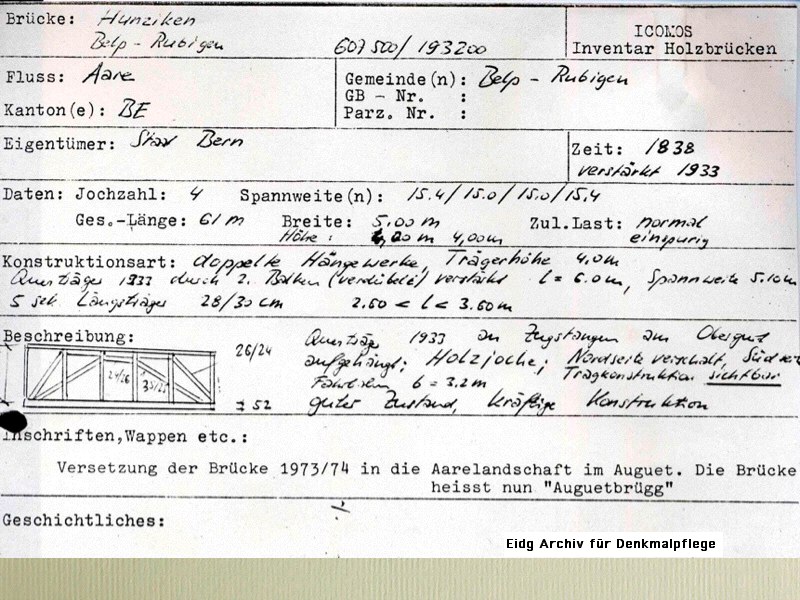 Brücke: Hunziken
Belp - Rubigen 607 500/ 193200
ICOMOS
Inventar Holzbrücken
Fluss: Aare
Kanton(e): BE
Gemeinde(n): Belp - Rubigen
GB - Nr. :
Parz. Nr. :
Eigentümer: Staat Bern
Zeit: 1838
verstärkt 1933
Daten: Jochzahl: 4 Spannweite(n): 15.4/15.0/15.0/15.4
Ges.-Länge: 61 m Breite: 5.00 m Zul.Last: normal
Höhe: 4,00m einspurig
Konstruktionsart: doppelte Hängewerke, Trägerhöhe 4.0m
Querträger 1933 durch 2. Balken (verdübelt) verstärkt l = 6.0m, Spannweite 5.10m
5 sek. Längsträger 28/30 cm 2.60 < l < 3.60m
Beschreibung:
26/24
24/26
33/25
± 52
Querträger 1933 an Zugstangen am Obergurt
aufgehängt; Holzjoche; Nordseite verschalt,
Tragkonstruktion sichtbar
Fahrbahn b = 3.2m
guter Zustand, kräftige Konstruktion
Inschriften,Wappen etc.:
Versetzung der Brücke 1973/74 in die Aarelandschaft im Auguet. Die Brücke
heisst nun "Auguetbrügg"
Geschichtliches:
Eidg Archiv für Denkmalpflege